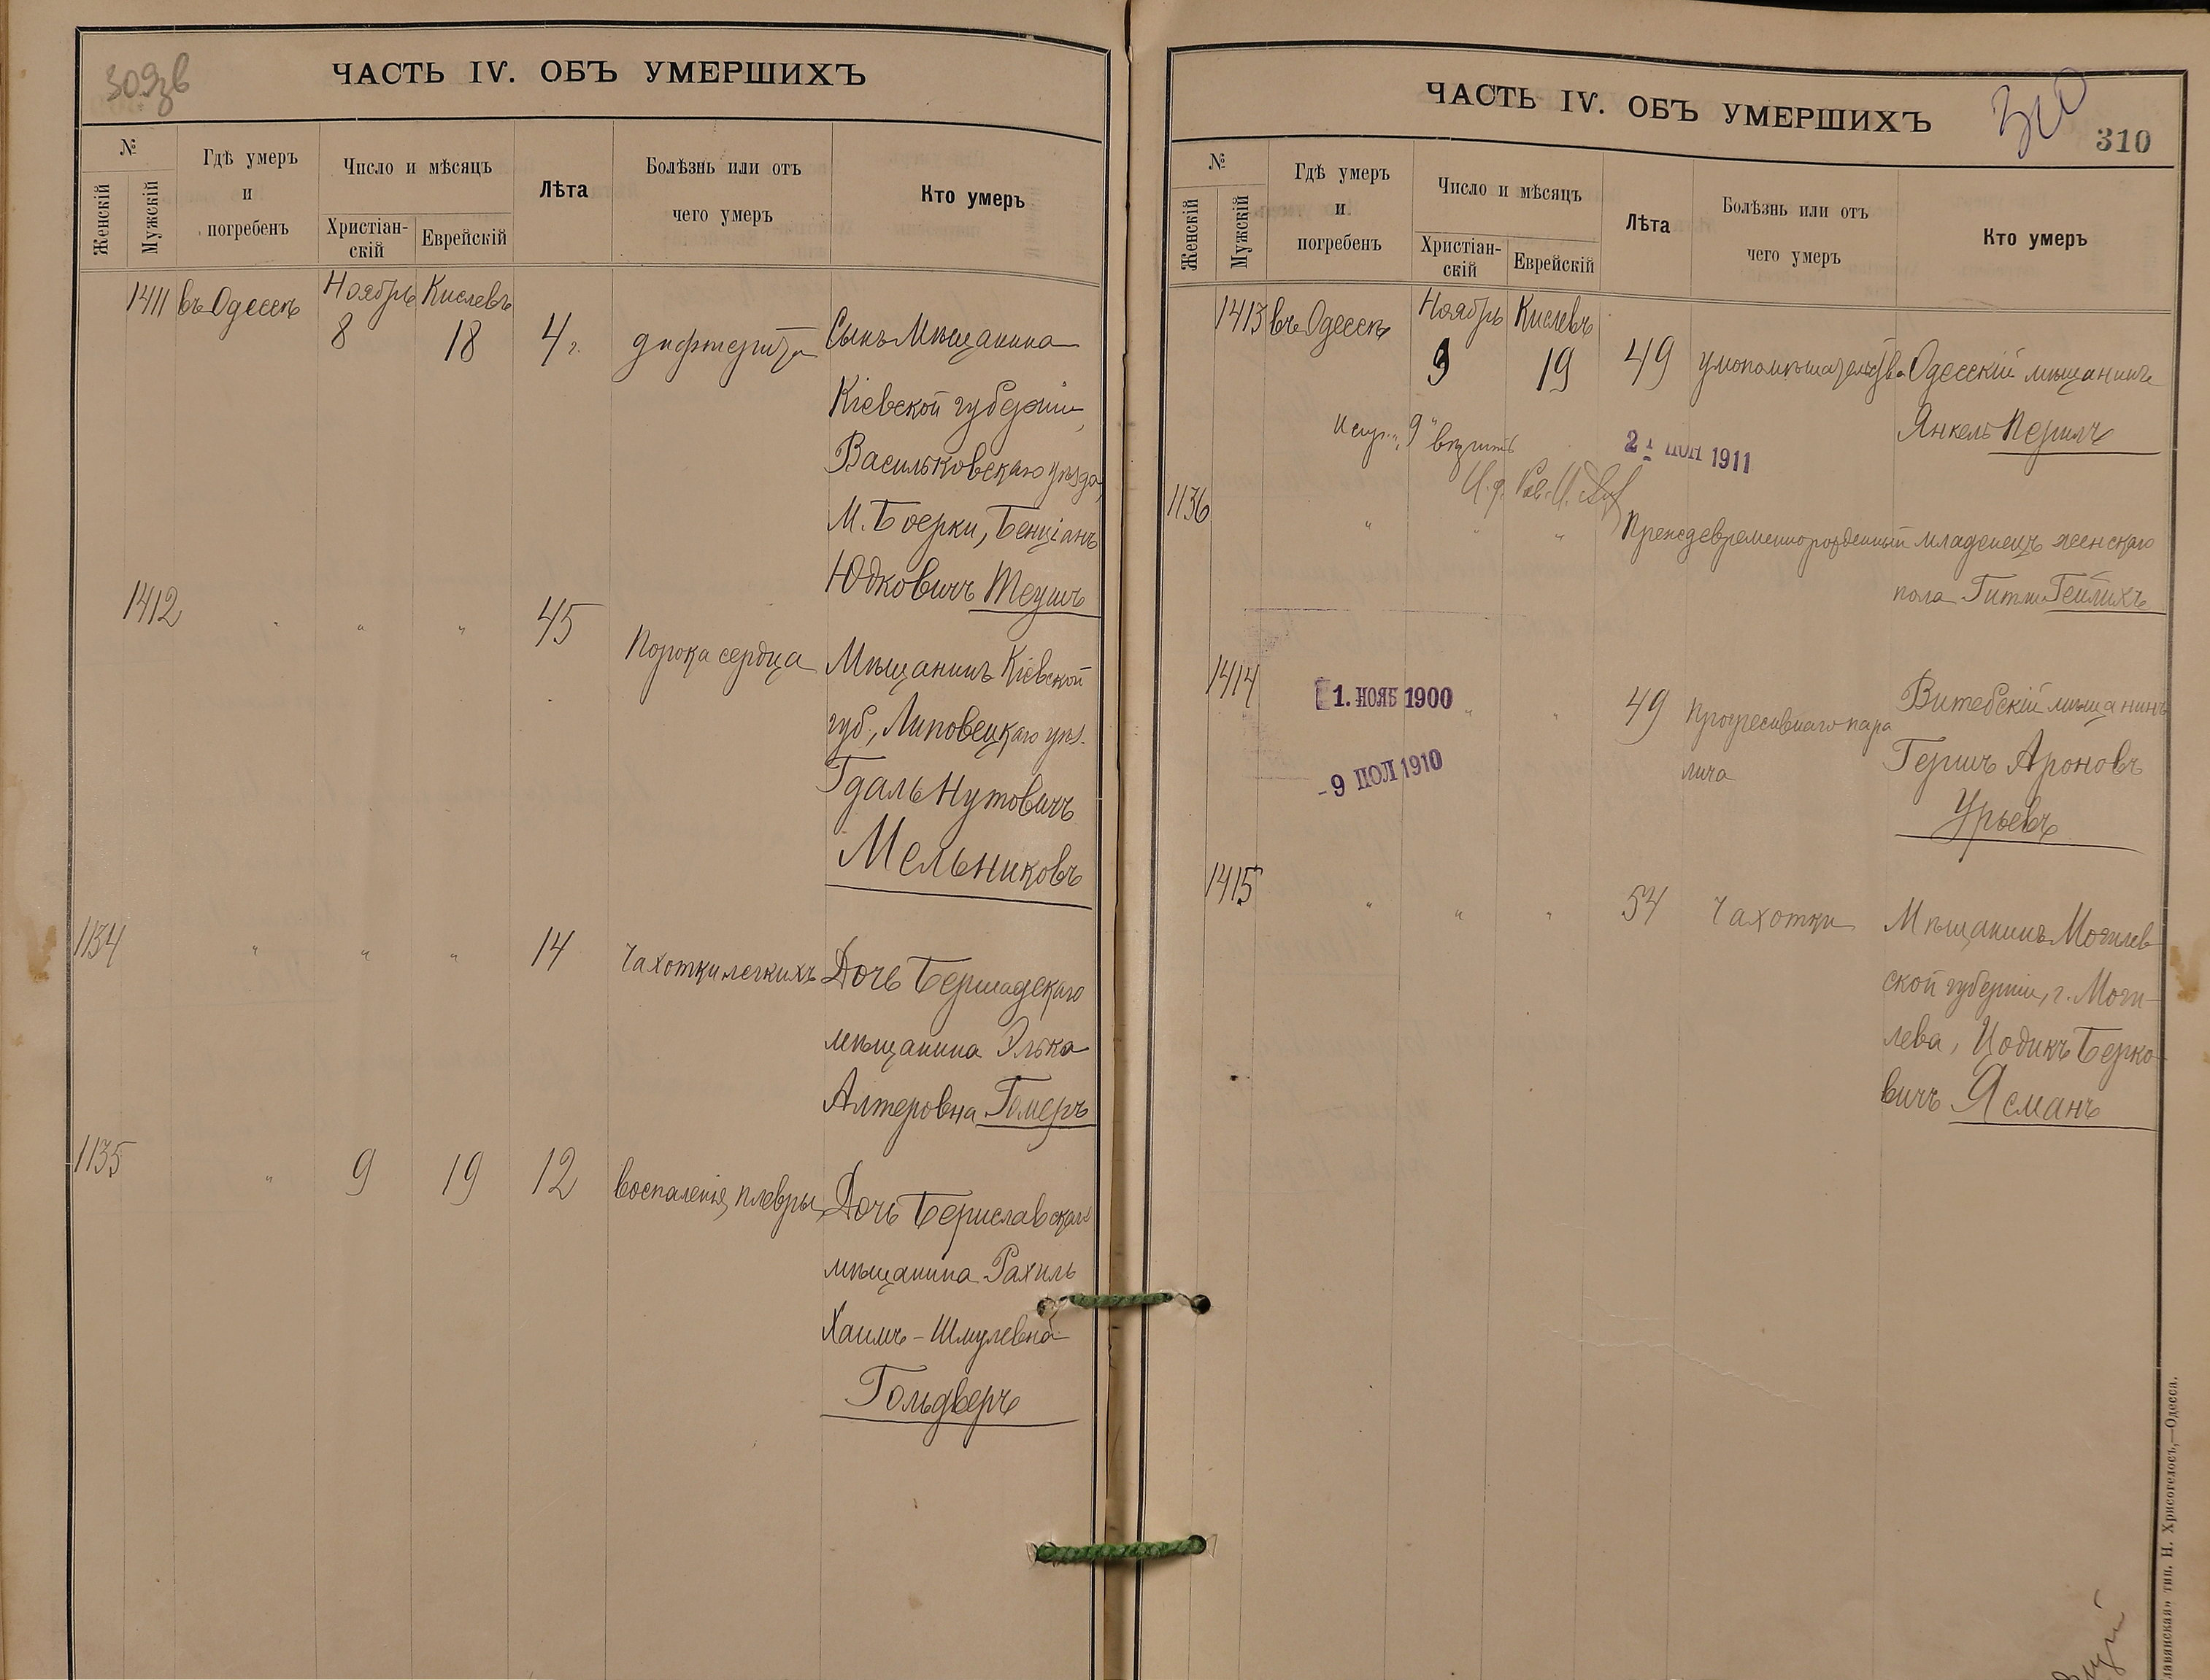 309зв
ЧАСТЬ IV. ОБЪ УМЕРШИХЪ
№
Женскій
Мужскій
Гдѣ умеръ
и
погребенъ
Число и мѣсяцъ
Христіан-
скій
Еврейскій
Лѣта
Болѣзнь или отъ
чего умеръ
Кто умеръ
1411 въ Одессѣ Ноябрь 8 Кислевъ 18 4 г. дифтерита Сынъ Мѣщанина
Кіевской губерніи,
Васильковскаго уѣзда,
М. Боерки, Бенціанъ
Юдковичъ Теушъ
1412 " " " 45 Порока сердца Мѣщанинъ Кіевской
губ., Липовецкаго уѣз.
Гдаль Нутовичъ
Мельниковъ
1134 " " " 14 Чахотки легкихъ Дочь Бершадскаго
мѣщанина Элька
Алтеровна Гомеръ
1135 " 9 19 12 воспаленія плевры Дочь Бериславскаго
мѣщанина Рахиль
Хаимъ-Шмулевна
Гольдверъ
ЧАСТЬ IV. ОБЪ УМЕРШИХЪ
310
310
№
Женскій
Мужскій
Гдѣ умеръ
и
погребенъ
Число и мѣсяцъ
Христіан-
скій
Еврейскій
Лѣта
Болѣзнь или отъ
чего умеръ
Кто умеръ
1413 въ Одессѣ Ноябрь 9 Кислевъ 19 49 умопомѣшательства Одесскій мѣщанинъ
Янкель Перилъ
"9" вѣрить
1911
1136 " " " Преждевременнорожденный младенецъ женскаго
пола Гитля Гейлихъ
1414 1. НОЯБ 1900 " " 49 Прогресивнаго пара
лича
-9 ИЮЛ 1910
Витебскій мѣщанинъ
Гершъ Ароновъ
Урьевъ
1415 " " " 54 Чахотки Мѣщанинъ Могилев
ской губерніи, г. Моги-
лева, Цодикъ Берко-
вичъ Ясманъ
тип. Н. Хрисогелосъ,—Одесса.